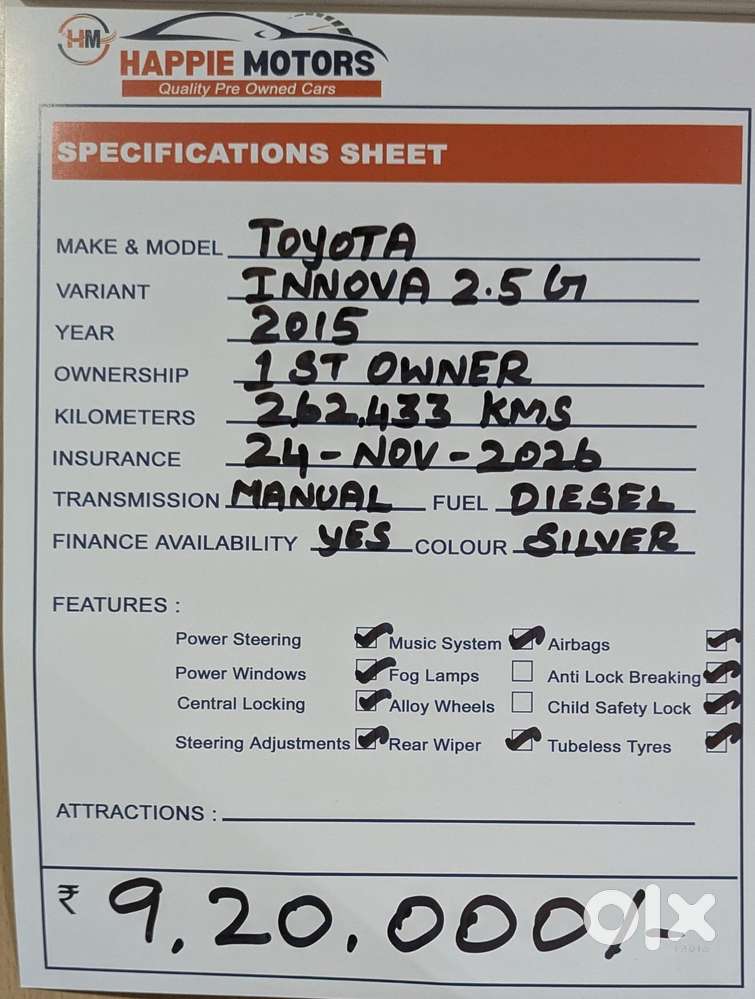 HM
HAPPIE MOTORS
Quality Pre Owned Cars
SPECIFICATIONS SHEET
MAKE & MODEL TOYOTA
VARIANT INNOVA 2.5 G
YEAR 2015
OWNERSHIP 1 ST OWNER
KILOMETERS 2,62,433 KMS
INSURANCE 24-NOV-2026
TRANSMISSION MANUAL FUEL DIESEL
FINANCE AVAILABILITY YES COLOUR SILVER
FEATURES :
Power Steering Music System Airbags
Power Windows Fog Lamps Anti Lock Breaking
Central Locking Alloy Wheels Child Safety Lock
Steering Adjustments Rear Wiper Tubeless Tyres
ATTRACTIONS :
₹ 9,20,000/-
olx